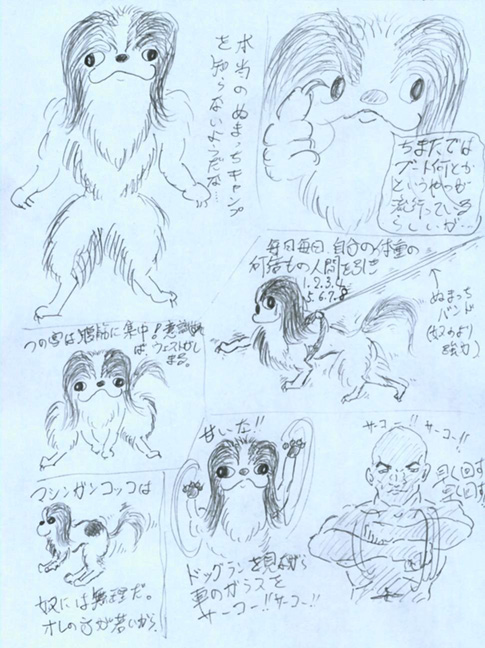 ちまたでは
ブート何とか
というやつが
流行っている
らしいが…
本当のぬまっちキャンプ
を知らないようだな…
毎日毎日、自分の体重の
何倍もの人間を引き
1.2.3.4.
5.6.7.8
ぬまっち
バンド
(奴のより
強力)
つの字は腹筋に集中!意識すれ
ば、ウェストがし
まる。
甘いわ!!
ドッグランを見ながら
車のガラスを
サーコー!!サーコー!!
サーコー!!
サーコー!!
早く回す
マシンガンコッコは
奴には無理だ。
オレの方が若いから。